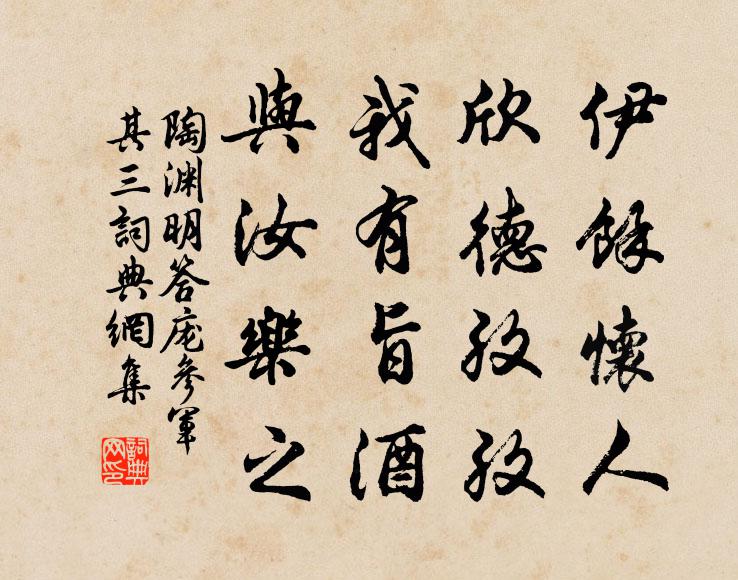 伊餘懷人
欣德孜孜
我有旨酒
與汝樂之
陶渊明答庞參軍
其三詞典網集
詞典网印